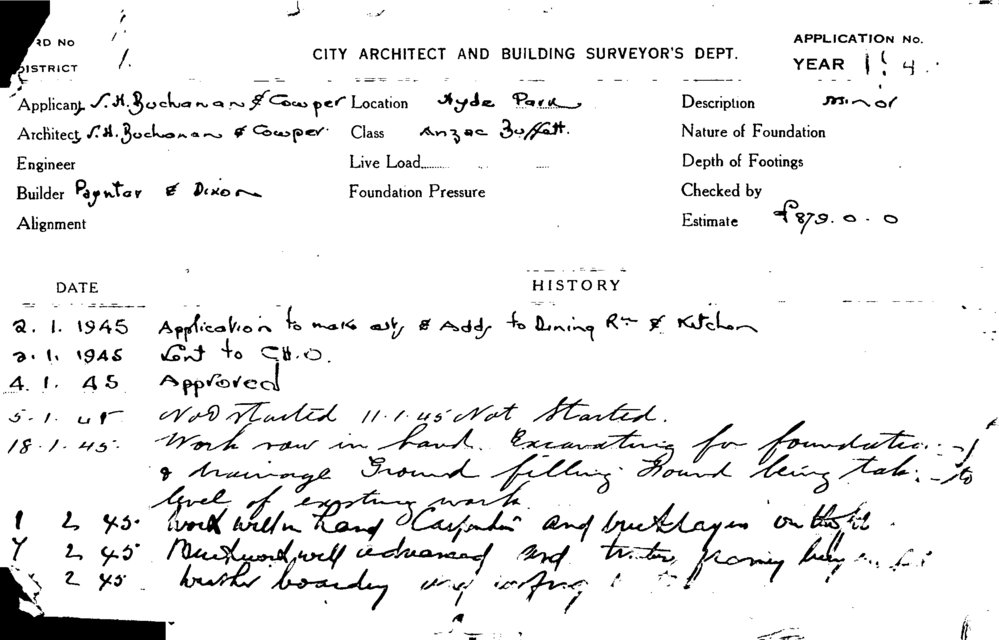 RD No
DISTRICT
CITY ARCHITECT AND BUILDING SURVEYOR'S DEPT.
APPLICATION No.
YEAR
Applicant J.H. Buchanan & Cowper Location Hyde Park Description minor
Architect J.H. Buchanan & Cowper Class Anzac Buffett. Nature of Foundation
Engineer Live Load Depth of Footings
Builder Paynter & Dixon Foundation Pressure Checked by
Alignment Estimate £879.0.0
DATE HISTORY
2.1.1945 Application to make alts & Adds to Dining Rm & Kitchen
2.1.1945 Sent to CH.O.
4.1.45 Approved
5.1.45 Not started 11.1.45 Not Started.
18.1.45. Work now in hand. Excavating for foundation
& drainage Ground filling being to
level of existing work
1 2 45. Work well in hand and bricklayers on the
7 2 45 Brickwork well advanced and framing
2 45 boarding